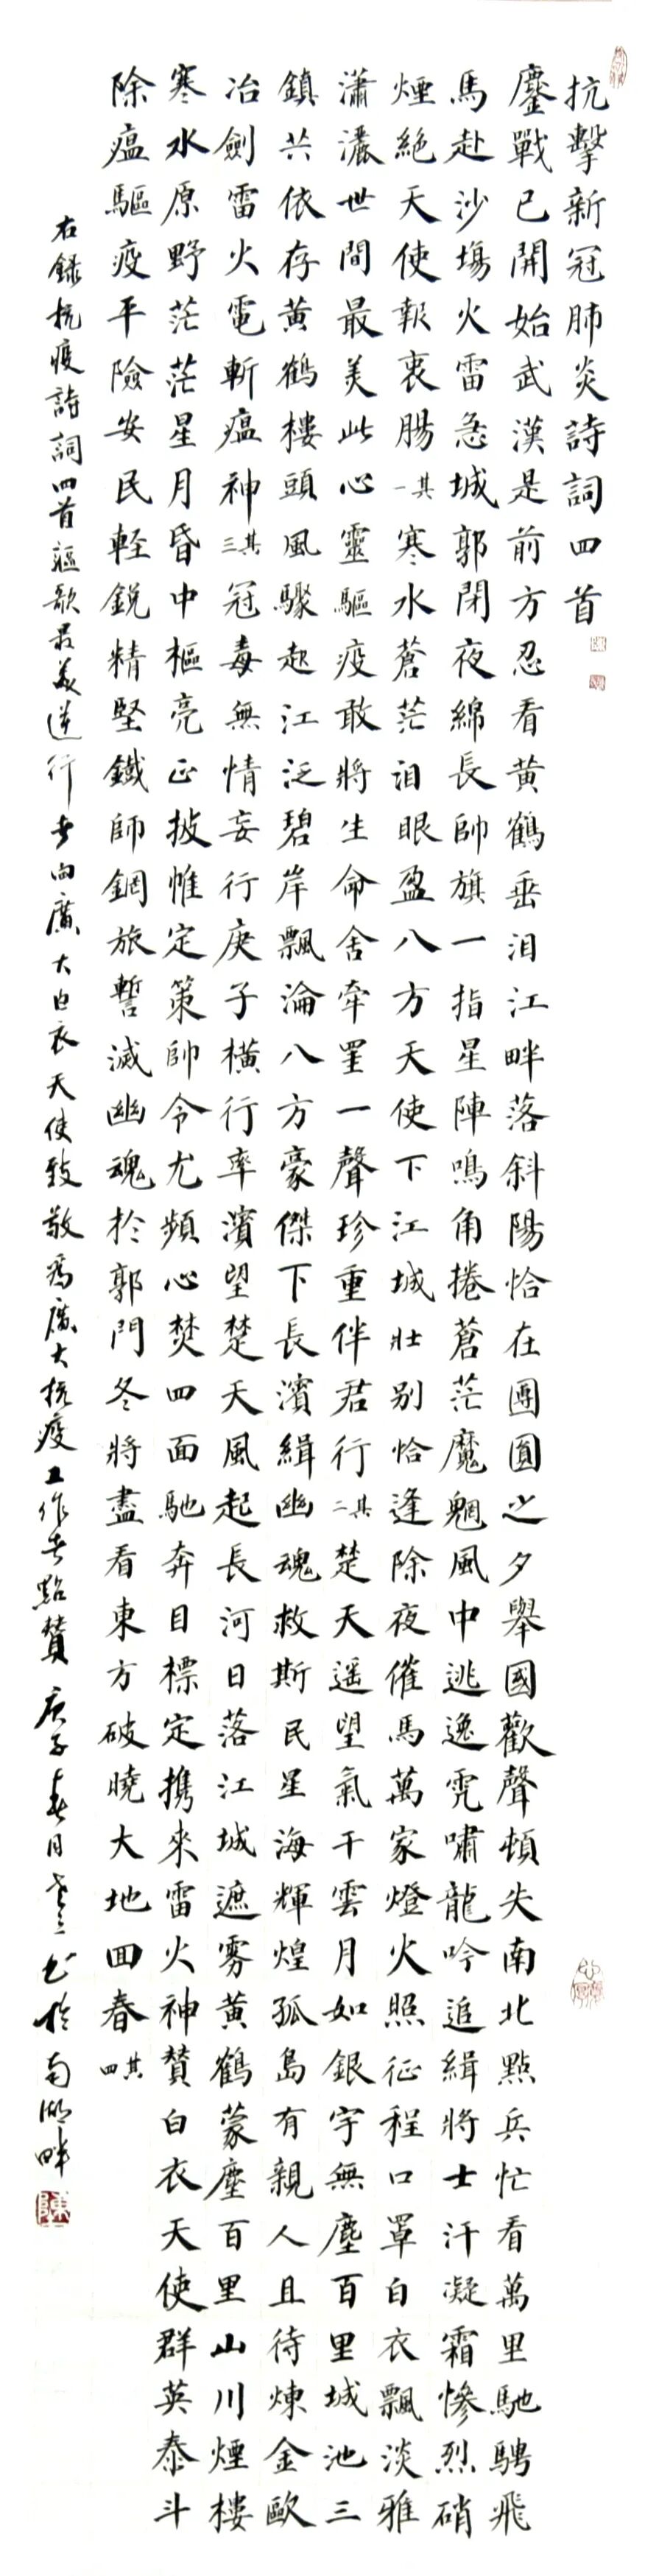 抗擊新冠肺炎詩詞四首
鏖戰已開始武漢是前方忍看黄鶴垂泪江畔落斜陽恰在團圓之夕舉國歡聲頓失南北點兵忙看萬里馳騁飛
馬赴沙塲火雷急城郭閉夜綿長帥旗一指星陣鳴角捲蒼茫魔魍風中逃逸虎嘯龍吟追緝將士汗凝霜慘烈硝
煙絶天使報衷腸其一寒水蒼茫泪眼盈八方天使下江城壯别恰逢除夜催馬萬家燈火照征程口罩白衣飄淡雅
瀟灑世間最美此心靈驅疫敢將生命舍牽罣一聲珍重伴君行其二楚天遥望氣干雲月如銀宇無塵百里城池三
鎮共依存黄鶴樓頭風驟起江泛碧岸飄淪八方豪傑下長濱緝幽魂救斯民星海輝煌孤島有親人且待煉金歐
冶劍雷火電斬瘟神其三冠毒無情妄行庚子横行率濱望楚天風起長河日落江城遮雾黄鶴蒙塵百里山川煙樓
寒水原野茫茫星月昏中樞亮正披帷定策帥令尤頻心焚四面馳奔目標定携來雷火神贊白衣天使群英泰斗
除瘟驅疫平險安民輕鋭精堅鐵師鋼旅誓滅幽魂於郭門冬將盡看東方破曉大地回春其四
右録抗疫詩詞四首謳歌最美逆行者向廣大白衣天使致敬爲廣大抗疫工作者點贊庚子春月書於南湖畔
陳